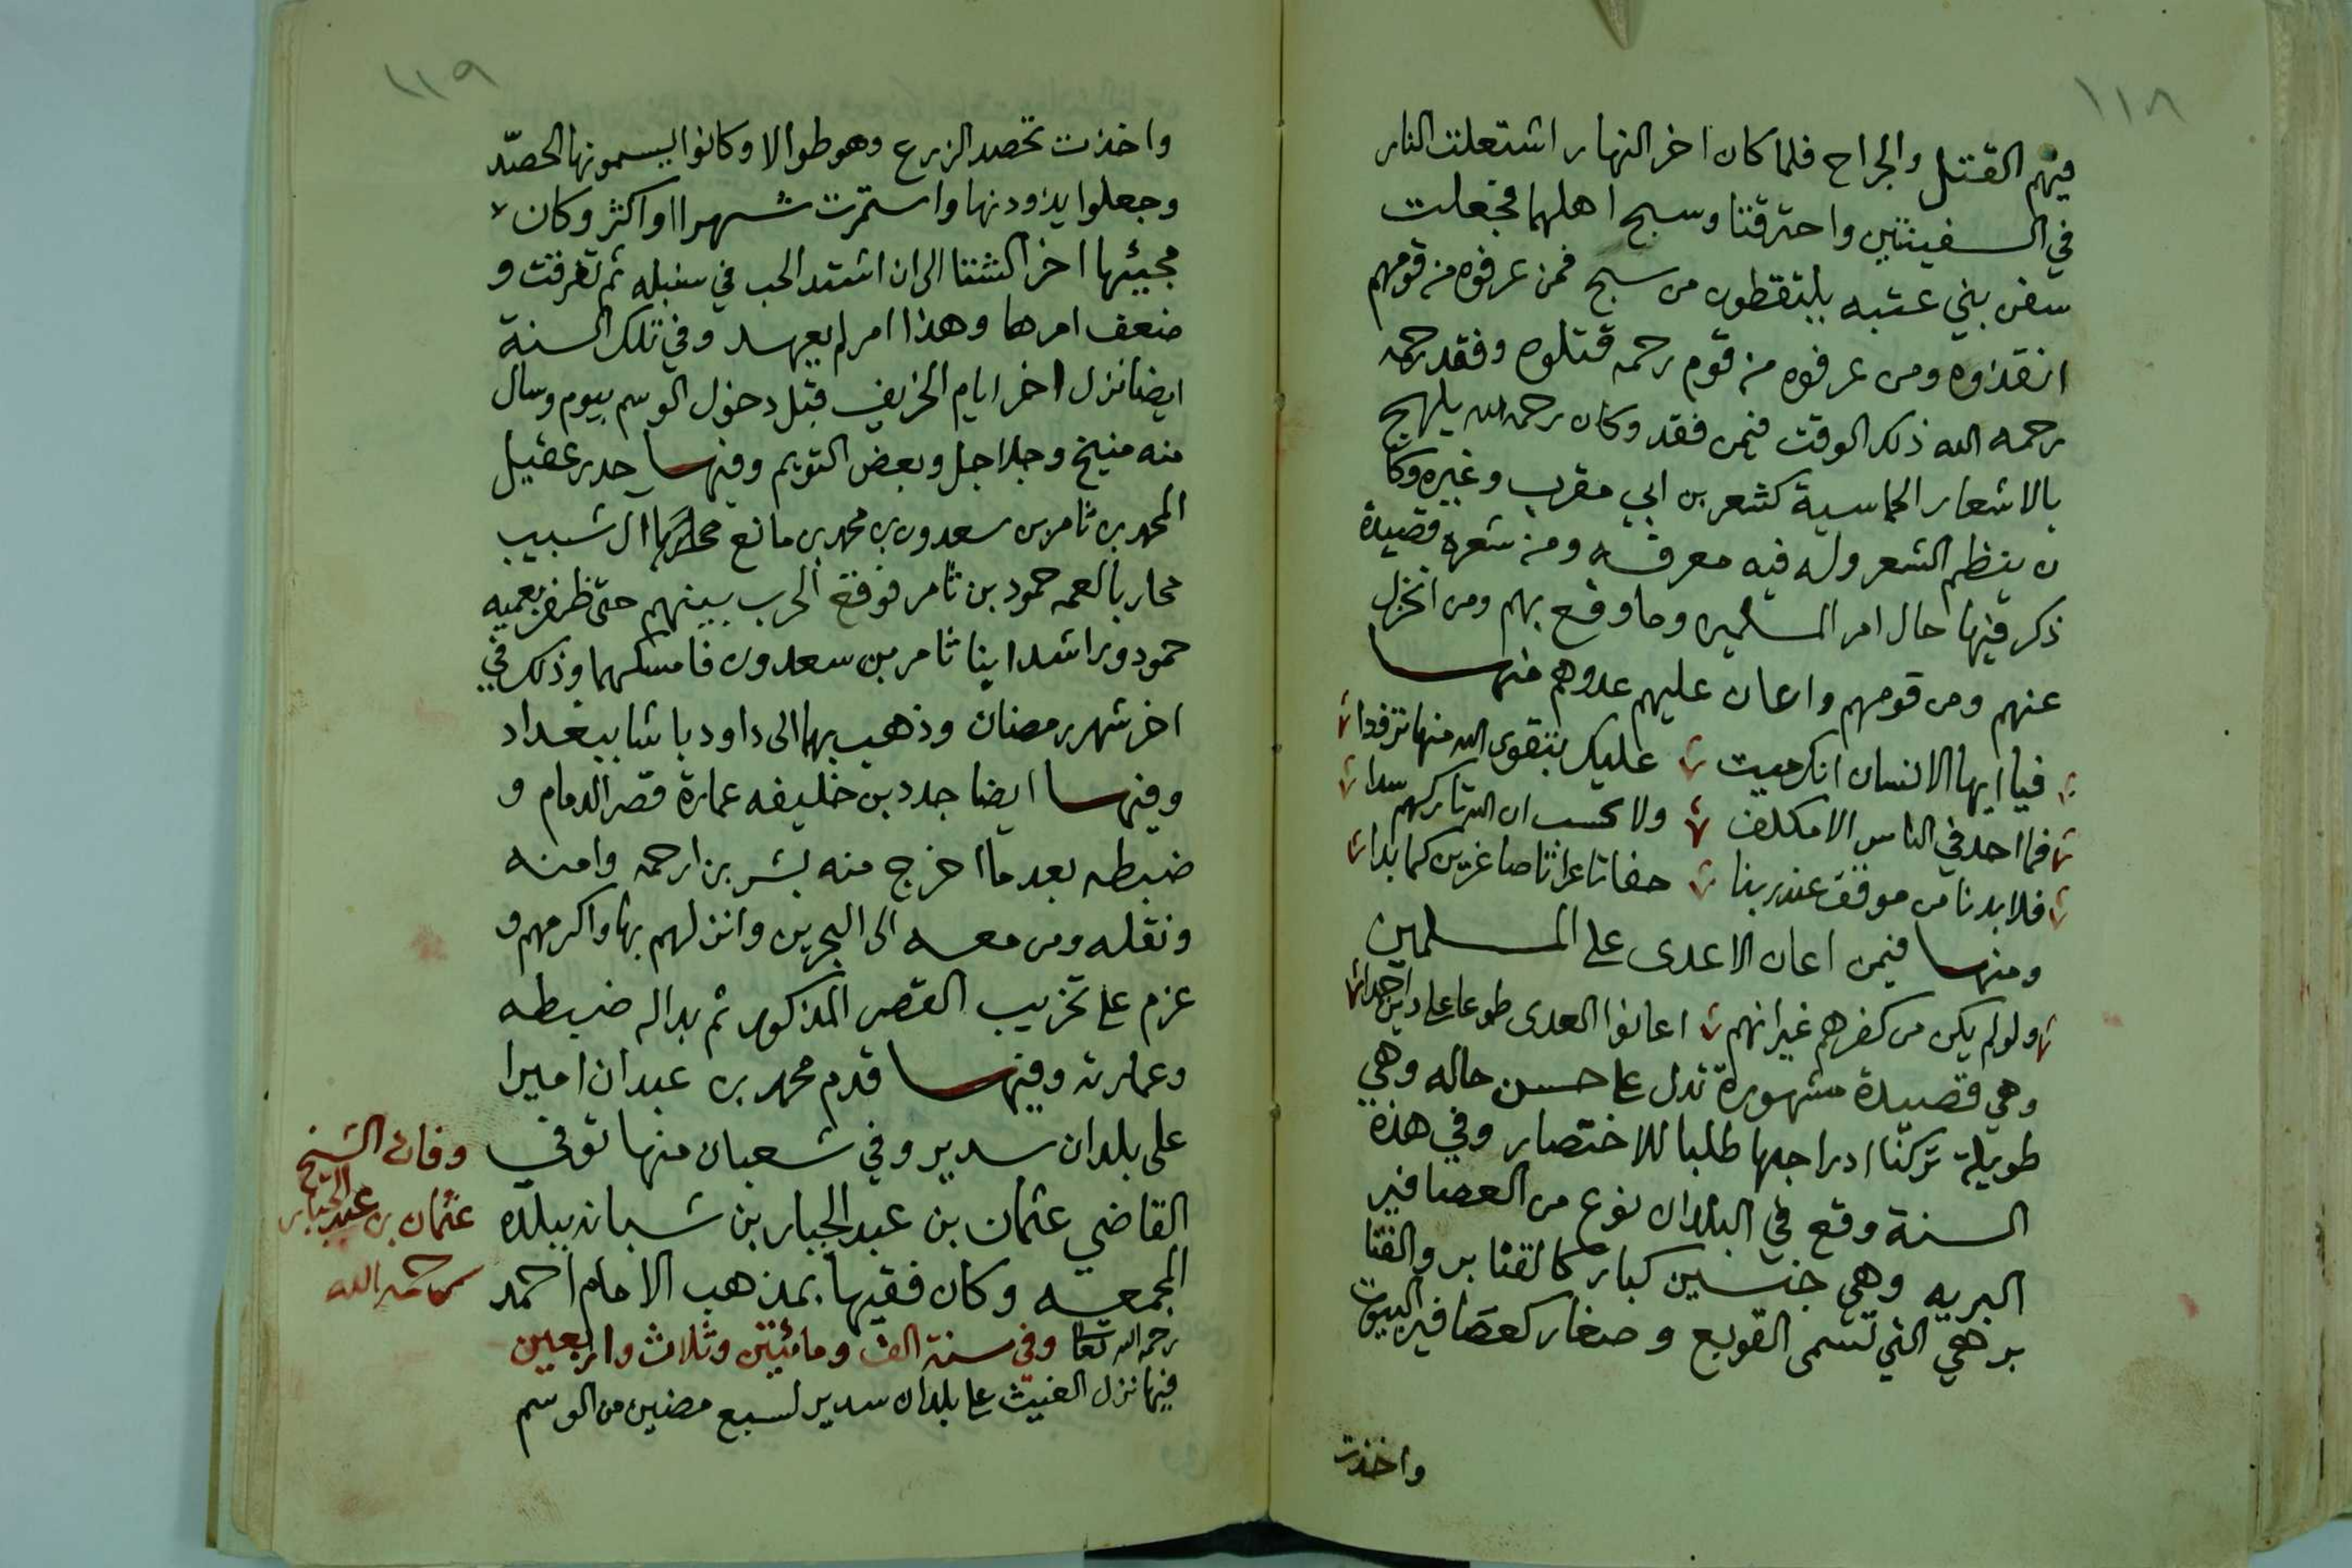 ١١٨
فيهم القتل والجراح فلما كان اخر النهار اشتعلت النار
في السفينتين واحترقتا وسبح اهلهما فجعلت
سفن بني عتبه يلتقطون من سبح فمن عرفوه من قومهم
انقذوه ومن عرفوه من قوم رحمه قتلوه وفقد رحمه
رحمه الله ذلك الوقت فيمن فقد وكان رحمه الله يلهج
بالاشعار الحماسية كشعر بن ابي مقرب وغيره وكا
ن ينظم الشعر وله فيه معرفه ومن شعره قصيدة
ذكر فيها حال امر المسلمين وما وقع بهم ومن انخزل
عنهم ومن قومهم واعان عليهم عدوهم منها
فيا ايها الانسان انك ميت عليك بتقوى الله منها تزودا
فما احد في الناس الا مكلف ولا تحسب ان الله تاركهم سدا
فلا بد نا من موقف عند ربنا حفاتا عراتا صاغرين كما بدا
ومنها فيمن اعان الاعدى على المسلمين
ولو لم يكن من كفرهم غير انهم اعانوا العدى طوعا على دين احمدا
وهي قصيدة مشهورة تدل على حسن حاله وهي
طويلة تركنا ادراجها طلبا للاختصار وفي هذه
السنة وقع في البلدان نوع من العصافير
البريه وهي جنسين كبار كالقنابر والقنا
بر هي التي تسمى القوبع وصغار كعصافير البيوت
واخذت
١١٩
واخذت تحصد الزرع وهو طوالا وكانوا يسمونها الحصد
وجعلوا يذودنها واستمرت شهرا او اكثر وكان
مجيئها اخر الشتا الى ان اشتد الحب في سنبله ثم تفرقت و
ضعف امرها وهذا امر لم يعهد وفي تلك السنة
ايضا نزل اخر ايام الخريف قبل دخول الوسم بيوم وسال
منه منيخ وجلاجل وبعض التويم وفيها حدر عقيل
المحمد بن ثامر بن سعدون بن محمد بن مانع ال شبيب
محاربا لعمه حمود بن ثامر فوقع الحرب بينهم حتى ظفر بعميه
حمود وراشد ابنا ثامر بن سعدون فامسكهما وذلك في
اخر شهر رمضان وذهب بهما الى داود باشا ببغداد
وفيها ايضا جدد بن خليفه عمارة قصر الدمام و
ضبطه بعد ما اخرج منه بشر بن ارحمه وامنه
ونقله ومن معه الى البحرين وانزلهم بها واكرمهم و
عزم على تخريب القصر المذكور ثم بدا له ضبطه
وعمارته وفيها قدم محمد بن عبدان اميرا
على بلدان سدير وفي شعبان منها توفي
القاضي عثمان بن عبد الجبار بن شبانه ببلده
المجمعه وكان فقيها بمذهب الامام احمد
رحمه الله تعا وفي سنة الف ومائتين وثلاث واربعين
فيها نزل الغيث على بلدان سدير لسبع مضين من الوسم
وفات الشيخ
عثمان بن عبد الجبار
رحمه الله